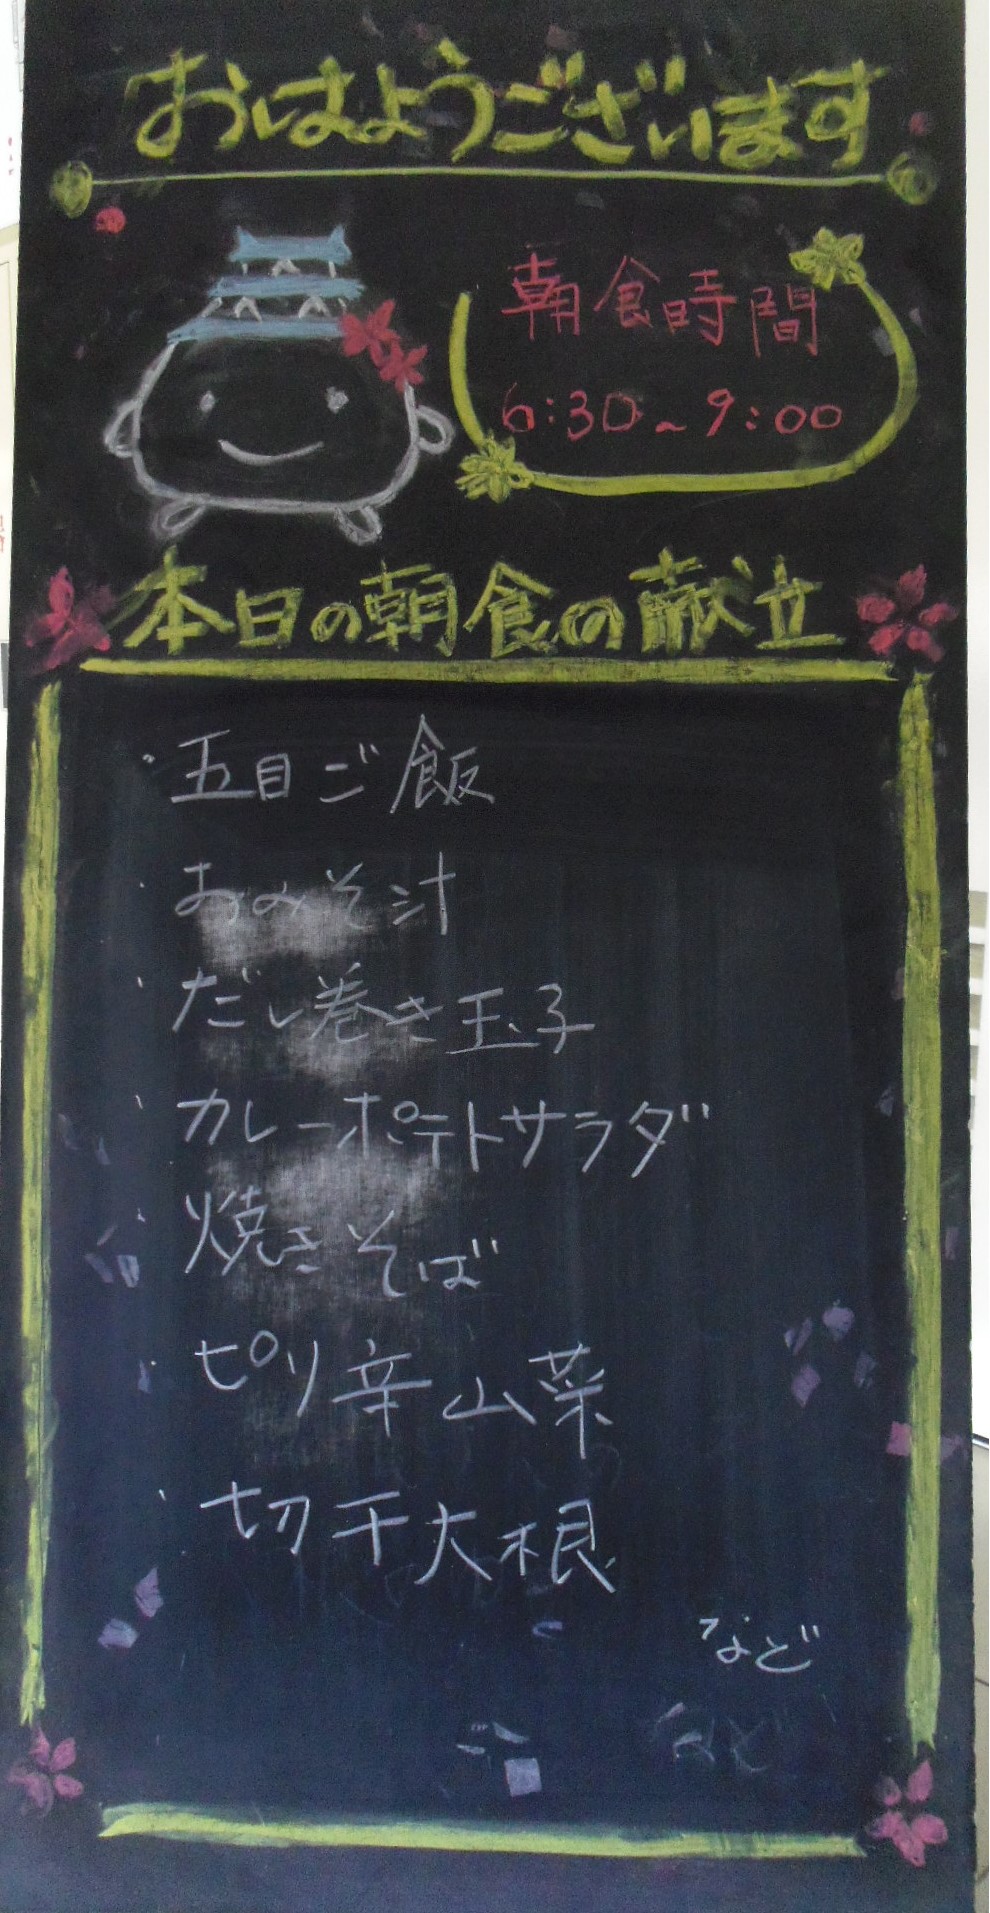 おはようございます
朝食時間
6:30~9:00
本日の朝食の献立
・五目ご飯
・おみそ汁
・だし巻き玉子
・カレーポテトサラダ
・焼きそば
・ピリ辛山菜
・切干大根
など